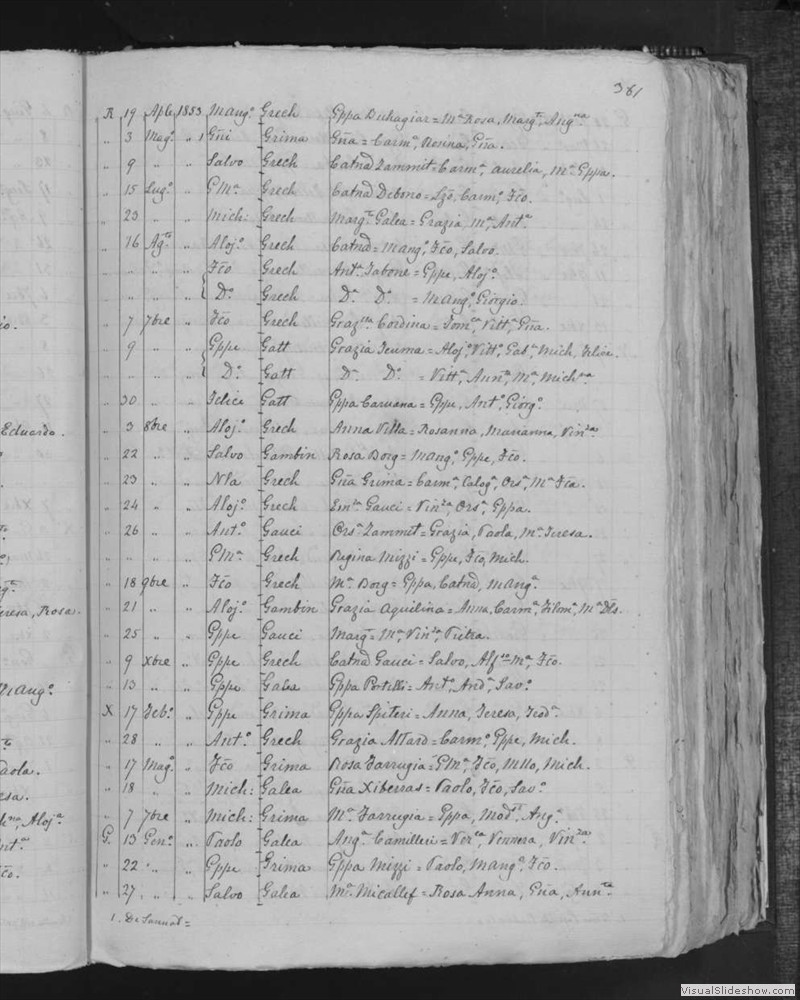 381
R 19 Aple 1853 Mangº Grech Gppa Duhagiar = Mª Rosa, Margtª, Angnª
" 3 Magº " 1 Gñi Grima Gña = Carmª, Rosina, Gña.
" 9 " " Salvo Grech Catnã Zammit = Carmª, Aurelia, Mª Gppa.
" 15 Lugº " GMª Grech Catnã Debono = Lzõ, Carmº, Fcõ.
" 23 " " Mich: Grech Margtª Galea = Grazia, Mª, Antª
" 16 Agtº " Alojº Grech Catnã = Mangº, Fcõ, Salvo.
" " " " Fcõ Grech Antª Tabone = Gppe, Alojº.
" " " " { Dº Grech Dª Dª = Mangº, Giorgio.
" 7 7bre " Fcõ Grech Grazllª Cordina = Tomcª, Vittª, Gña.
" 9 " " Gppe Gatt Grazia Teuma = Alojº, Vittº, Gabª, Mich, Felice.
" " " " { Dº Gatt Dª Dª = Vittª, Annª, Mª, Michnª
" 30 " " Felice Gatt Gppa Caruana = Gppe, Antº, Giorgº.
" 3 8bre " Alojº Grech Anna Vella = Rosanna, Marianna, Vinzª.
" 22 " " Salvo Gambin Rosa Borg = Mangº, Gppe, Fcõ.
" 23 " " Nla Grech Gña Grima = Carmª, Calogª, Orsª, Mª Fca.
" 24 " " Alojº Grech Emzª Gauci = Vinzª, Orsª, Gppa.
" 26 " " Antº Gauci Orsª Zammit = Grazia, Paola, Mª Teresa.
" " " " GMª Grech Regina Mizzi = Gppe, Fcõ, Mich.
" 18 9bre " Fcõ Grech Mª Borg = Gppa, Catnã, Mangª.
" 21 " " Alojº Gambin Grazia Aquilina = Anna, Carmª, Filomª, Mª Dls.
" 25 " " Gppe Gauci Margtª = Mª, Vinzª, Pietra.
" 9 Xbre " Gppe Grech Catnã Gauci = Salvo, Alfse Mª, Fcõ.
" 13 " " Gppe Galea Gppa Portelli = Antº, Andª, Savº.
X 17 Febº " Gppe Grima Gppa Spiteri = Anna, Teresa, Teodª.
" 28 " " Antº Grech Grazia Attard = Carmº, Gppe, Mich.
" 17 Magº " Fcõ Grima Rosa Farrugia = GMª, Fcõ, Nllo, Mich.
" 18 " " Mich: Galea Gña Xiberras = Paolo, Fcõ, Savº.
" 7 7bre " Mich: Grima Mª Farrugia = Gppa, Modstª, Angª.
G. 13 Genº " Paolo Galea Angª Camilleri = Vercª, Vennera, Vinzª.
" 22 " " Gppe Grima Gppa Mizzi = Paolo, Mangº, Fcõ.
" 27 " " Salvo Galea Mª Micallef = Rosa Anna, Gña, Anntª
io.
Eduardo.
Teresa, Rosa.
Mangº
Paola.
esa.
, Alojª
Antª
Fcõ.
VisualSlideshow.com